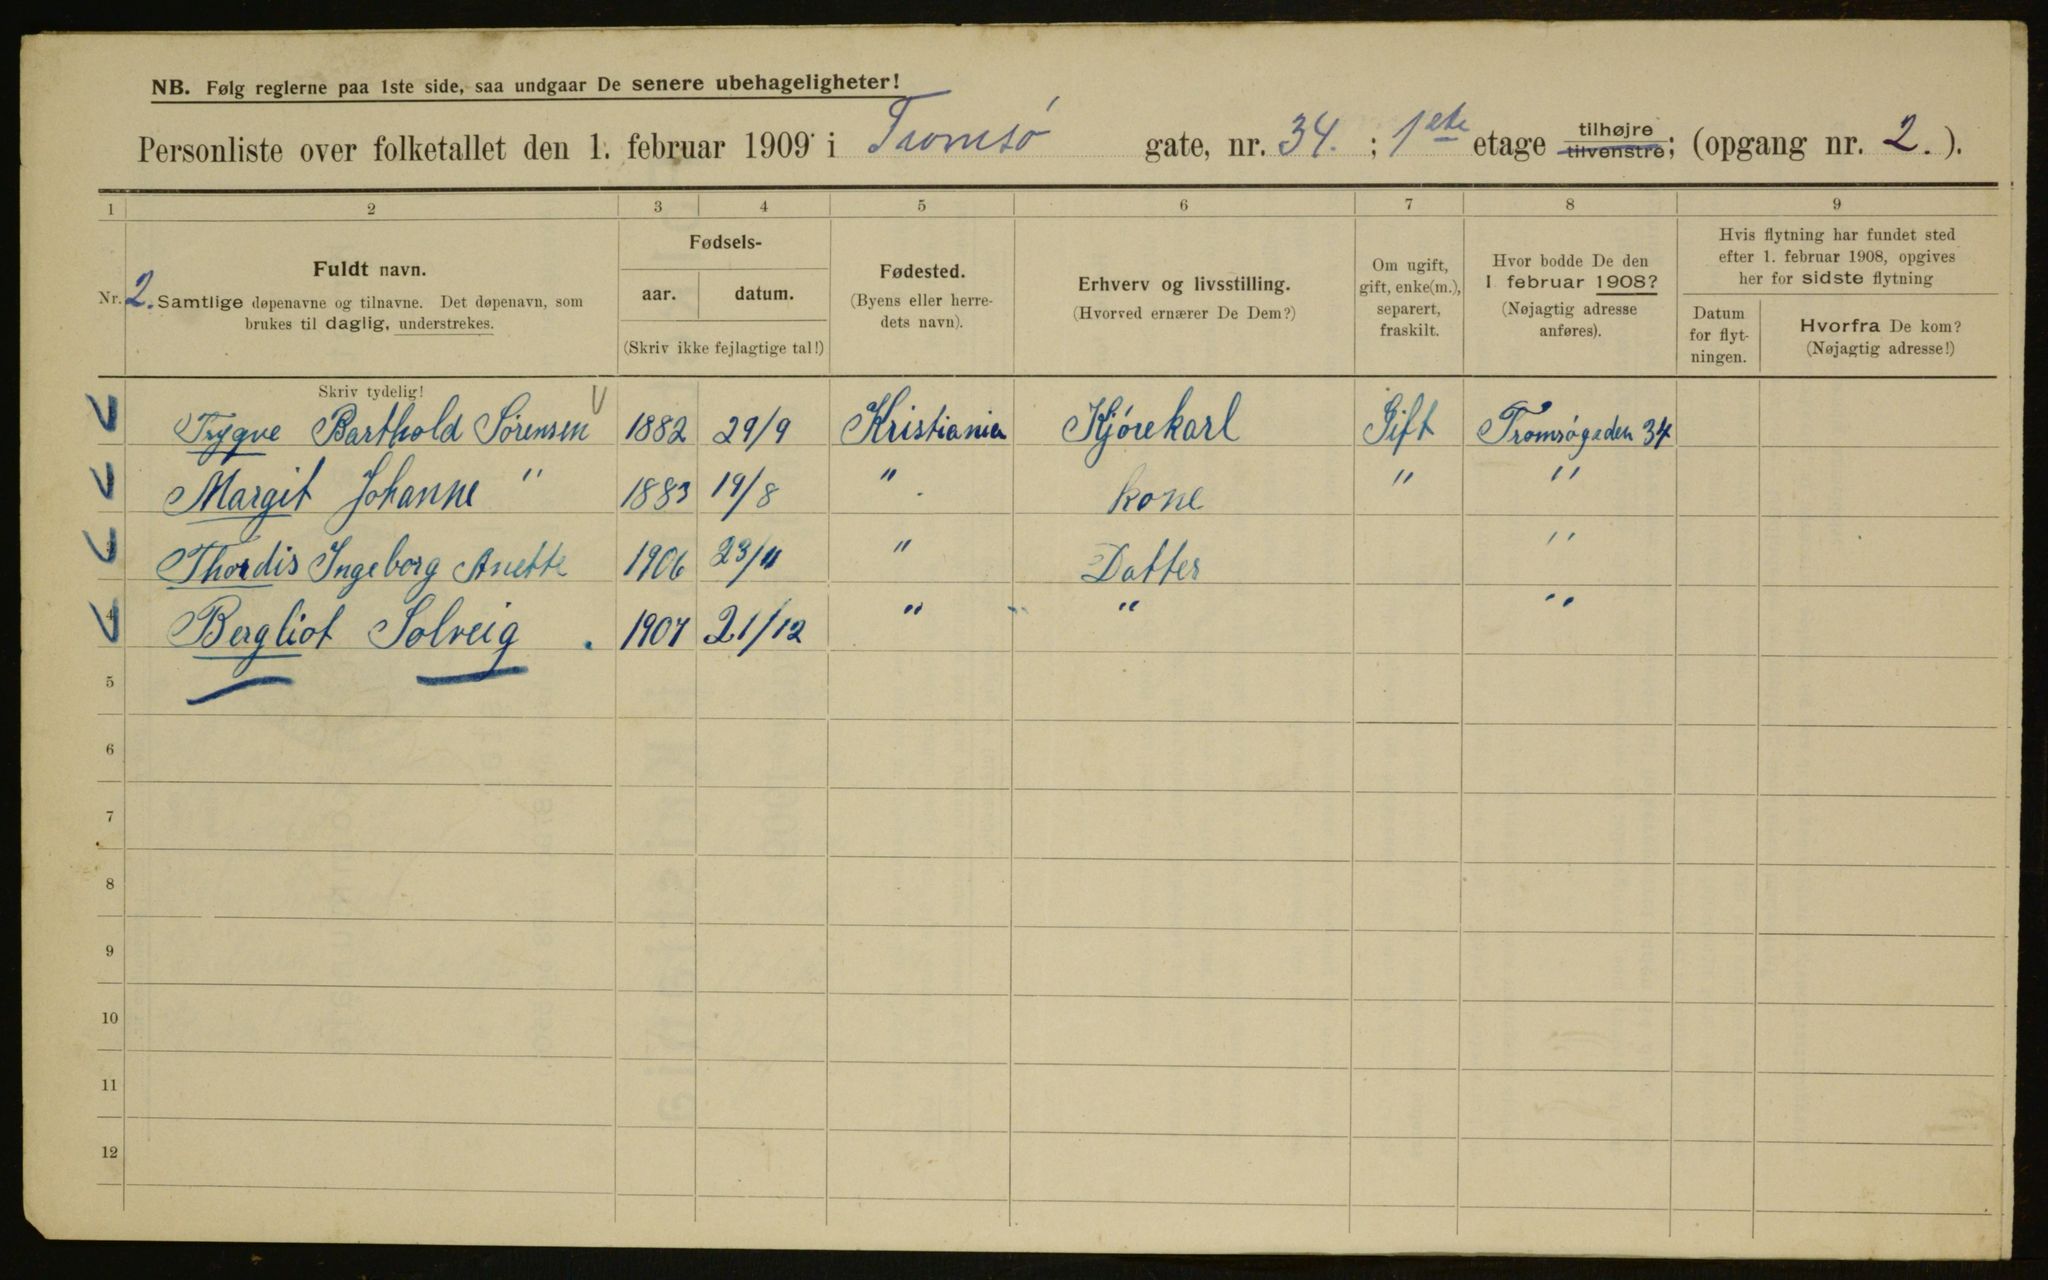 NB. Følg reglerne paa 1ste side, saa undgaar De senere ubehageligheter!
Personliste over folketallet den 1. februar 1909 i Tromsø gate, nr. 34. ; 1ste etage tilhøjre tilvenstre; (opgang nr. 2. ).
1 2 3 4 5 6 7 8 9
Nr. 2.
Fuldt navn.
Samtlige døpenavne og tilnavne. Det døpenavn, som
brukes til daglig, understrekes.
Skriv tydelig!
Fødsels-
aar. datum.
(Skriv ikke fejlagtige tal!)
Fødested.
(Byens eller herre-
dets navn).
Erhverv og livsstilling.
(Hvorved ernærer De Dem?)
Om ugift,
gift, enke(m.),
separert,
fraskilt.
Hvor bodde De den
1 februar 1908?
(Nøjagtig adresse
anføres).
Hvis flytning har fundet sted
efter 1. februar 1908, opgives
her for sidste flytning
Datum
for flyt-
ningen.
Hvorfra De kom?
(Nøjagtig adresse!)
Trygve Barthold Sørensen 1882 29/9 Kristiania Kjørekarl Gift Tromsøgaden 34
Margit Johanne " 1883 19/8 " kone " "
3 Thordis Ingeborg Anette 1906 23/11 " Datter "
4 Bergliot Solveig . 1907 21/12 " " "
5
6
7
8
9
10
11
12